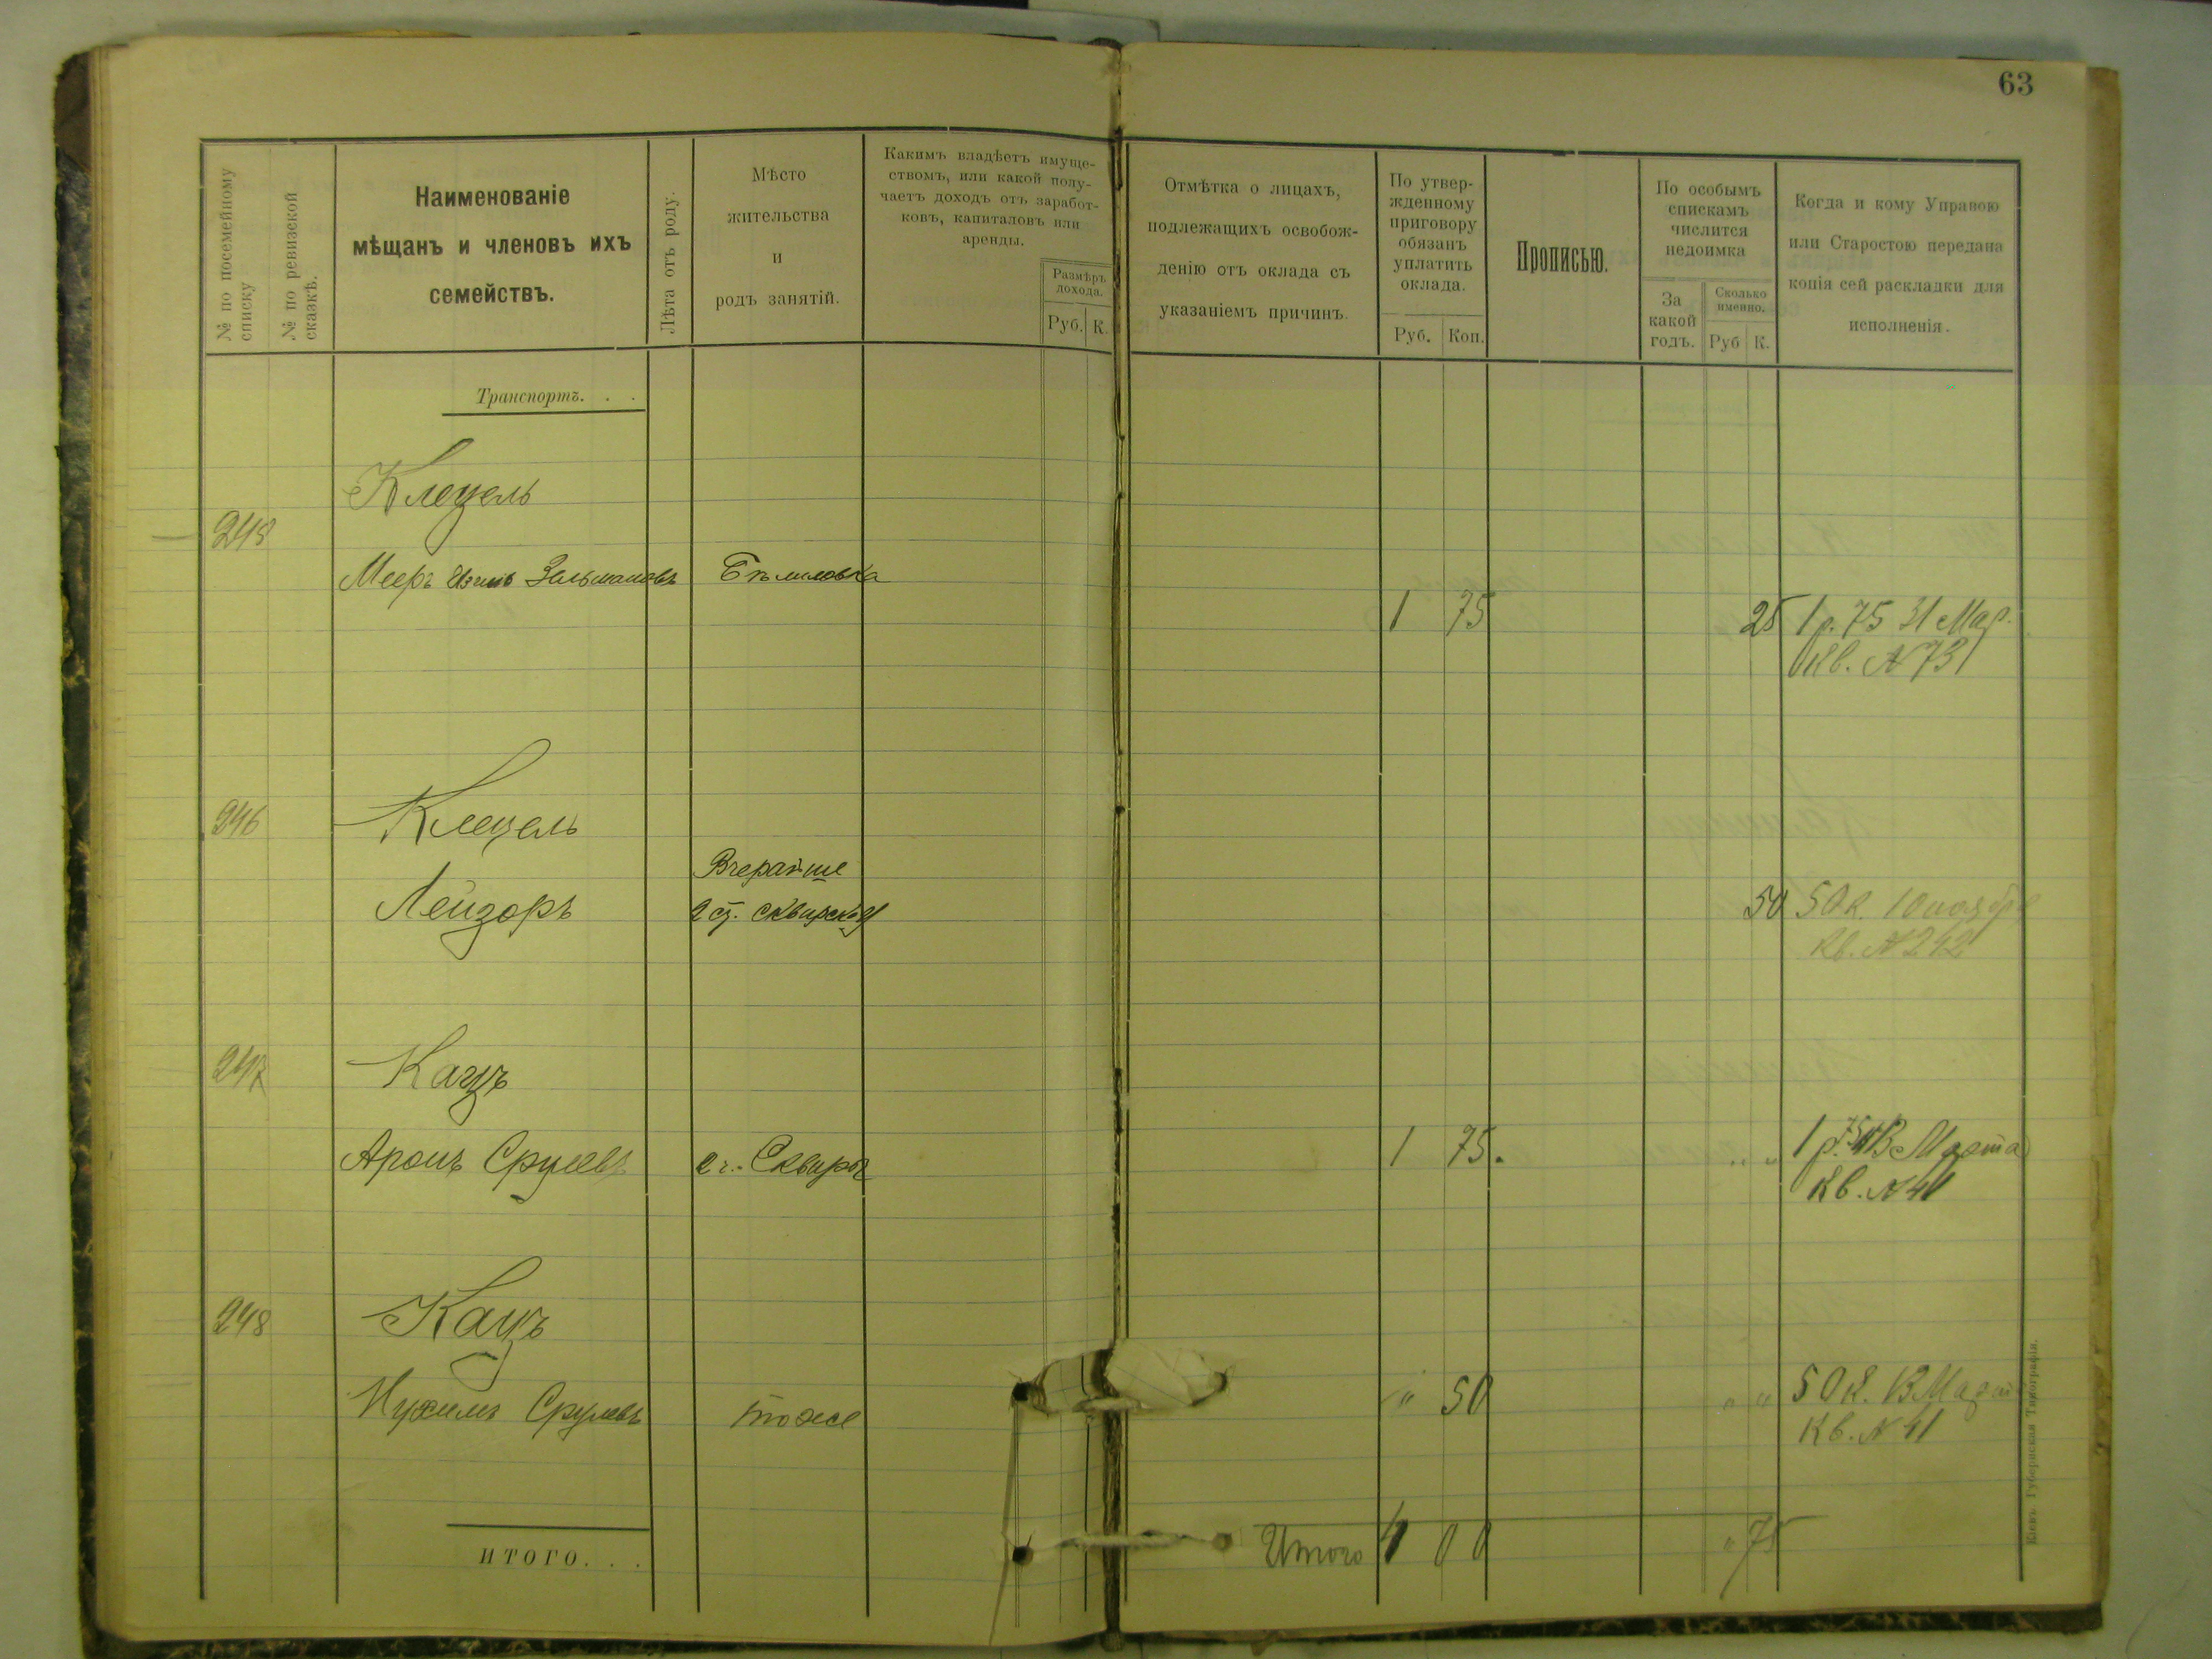 63
№ по посемейному списку
№ по ревизской сказкѣ.
Наименованіе
мѣщанъ и членовъ ихъ
семействъ.
Лѣта отъ роду.
Мѣсто
жительства
и
родъ занятій.
Какимъ владѣетъ имуще-
ствомъ, или какой полу-
чаетъ доходъ отъ заработ-
ковъ, капиталовъ или
аренды.
Размѣръ
дохода.
Руб. К.
Отмѣтка о лицахъ,
подлежащихъ освобож-
денію отъ оклада съ
указаніемъ причинъ.
По утвер-
жденному
приговору
обязанъ
уплатить
оклада.
Руб. Коп.
Прописью.
По особымъ
спискамъ
числится
недоимка
За
какой
годъ.
Сколько
именно.
Руб К.
Когда и кому Управою
или Старостою передана
копія сей раскладки для
исполненія.
Транспортъ. . .
Клецель
245
Мееръ Зельмановъ Бѣлиловка
1 75 25 1 р. 75 31 Мар.
Кв. №73
246 Клецель
Вчерайше
Лейзоръ Сквирской 50 50 к. 10 ноября
Кв. №242
247 Кацъ
Аронъ Срулевъ г. Сквира 1 75. " " 1 р. 75 13 Марта
Кв. №41
248 Кацъ
Нухимъ Срулевъ тоже " 50 " " 50 к. 13 Марта
Кв. №41
ИТОГО. . . Итого 4 00 " 75
Кіевъ. Губернская Типографія.